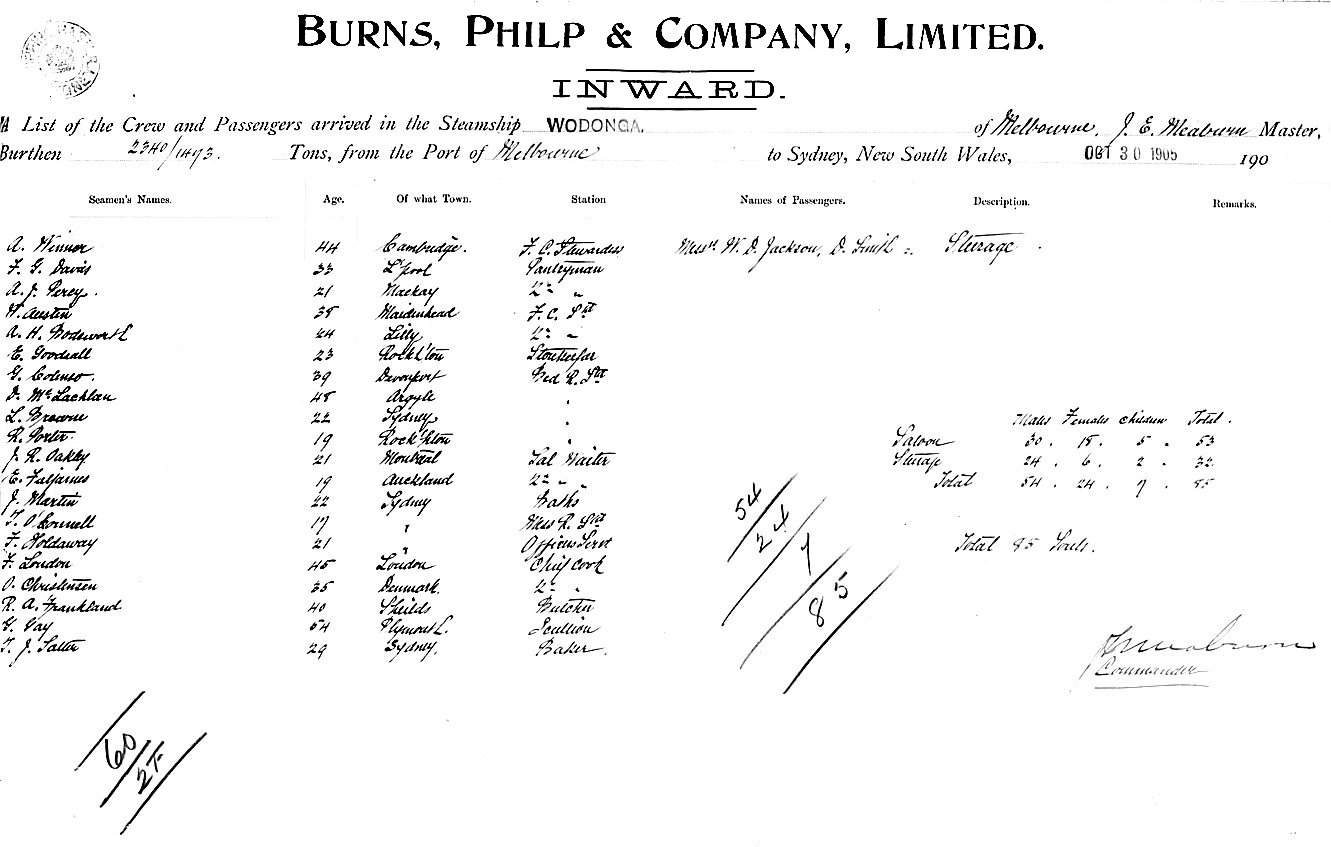 BURNS, PHILP & COMPANY, LIMITED.
INWARD.
A List of the Crew and Passengers arrived in the Steamship WODONGA. of Melbourne, J. E. Meaburn Master,
Burthen 2340/1473. Tons, from the Port of Melbourne to Sydney, New South Wales, OCT 30 1905 190
Seamen's Names. Age. Of what Town. Station Names of Passengers. Description. Remarks.
A. Winner 44 Cambridge. F. C. Stewardess Messrs W. D. Jackson, D. Smith = Steerage
F. G. Davis 33 L'pool Pantryman
A. J. Percy. 21 Mackay 2nd "
W. Austin 38 Maidenhead F. C. Std
A. H. Bodsworth 24 Lilly 2nd "
E. Goodsall 23 Rockh'ton Storekeeper
G. Colenso. 39 Devonport Bed R. Std
D. McLachlan 48 Argyle "
L. Browne 22 Sydney "
R. Porter. 19 Rockh'ton "
J. R. Oakley 21 Montreal Sal Waiter
E. 19 Auckland 2nd " "
J. Martin 22 Sydney Baths
T. O'Connell 17 " Mess R. Std
F. Holdaway 21 " Officers Servt
F. London 45 London Chief Cook
O. Christensen 35 Denmark. 2nd "
R. A. Frankland 40 Sheilds Butcher
G. Vay 54 Plymouth. Scullion
T. J. Salter 29 Sydney. Baker.
Males Females Children Total.
Saloon 30. 18. 5. 53
Steerage 24. 6. 2. 32
Total 54. 24. 7. 85
54/24/7/85
Total 85 Souls.
Commander
60/25